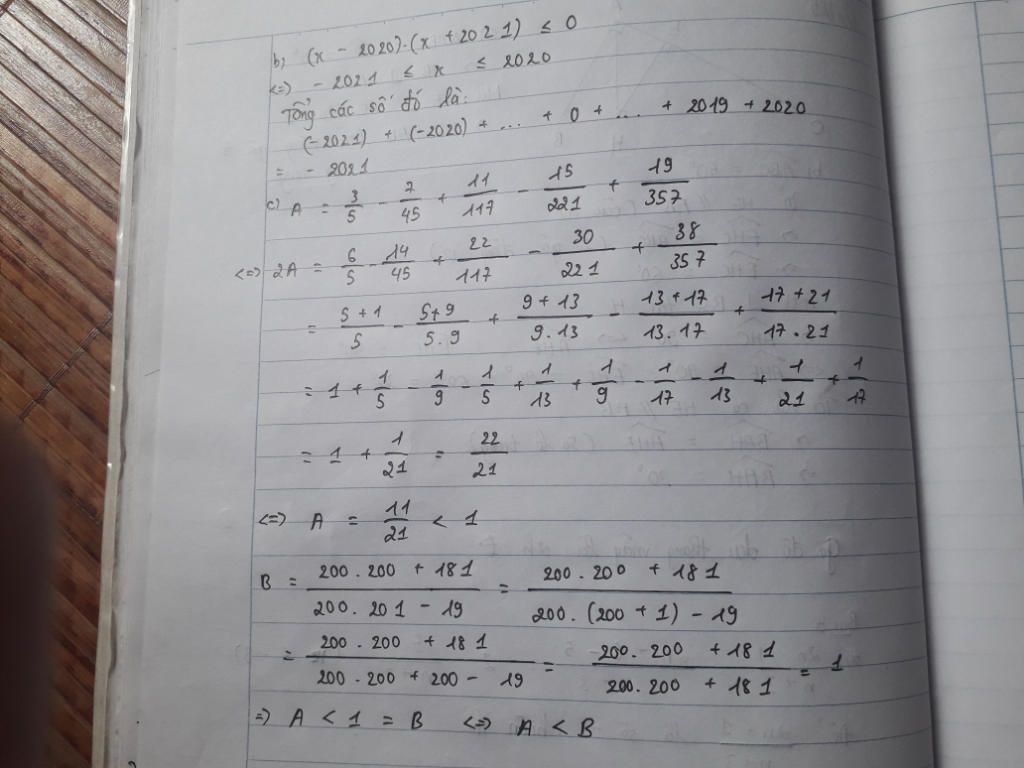 b, (x - 2020).(x + 2021) ≤ 0
<=> - 2021 ≤ x ≤ 2020
Tổng các số đó là:
(-2021) + (-2020) + ... + 0 + ... + 2019 + 2020
= - 2021
c) A = 3/5 - 7/45 + 11/117 - 15/221 + 19/357
<=> 2A = 6/5 - 14/45 + 22/117 - 30/221 + 38/357
= (5 + 1)/5 - (5+9)/(5.9) + (9 + 13)/(9.13) - (13+17)/(13.17) + (17+21)/(17.21)
= 1 + 1/5 - 1/9 - 1/5 + 1/13 + 1/9 - 1/17 - 1/13 + 1/21 + 1/17
= 1 + 1/21 = 22/21
<=> A = 11/21 < 1
B = (200.200 + 181)/(200.201 - 19) = (200.200 + 181)/(200.(200 + 1) - 19)
= (200.200 + 181)/(200.200 + 200 - 19) = (200.200 + 181)/(200.200 + 181) = 1
=> A < 1 = B <=> A < B